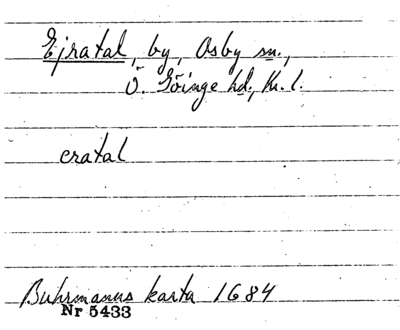 Ejratal, by, Osby sn.,
Ö. Göinge hd., Kr. l.
eratal
Buhrmanns karta 1684
Nr 5433